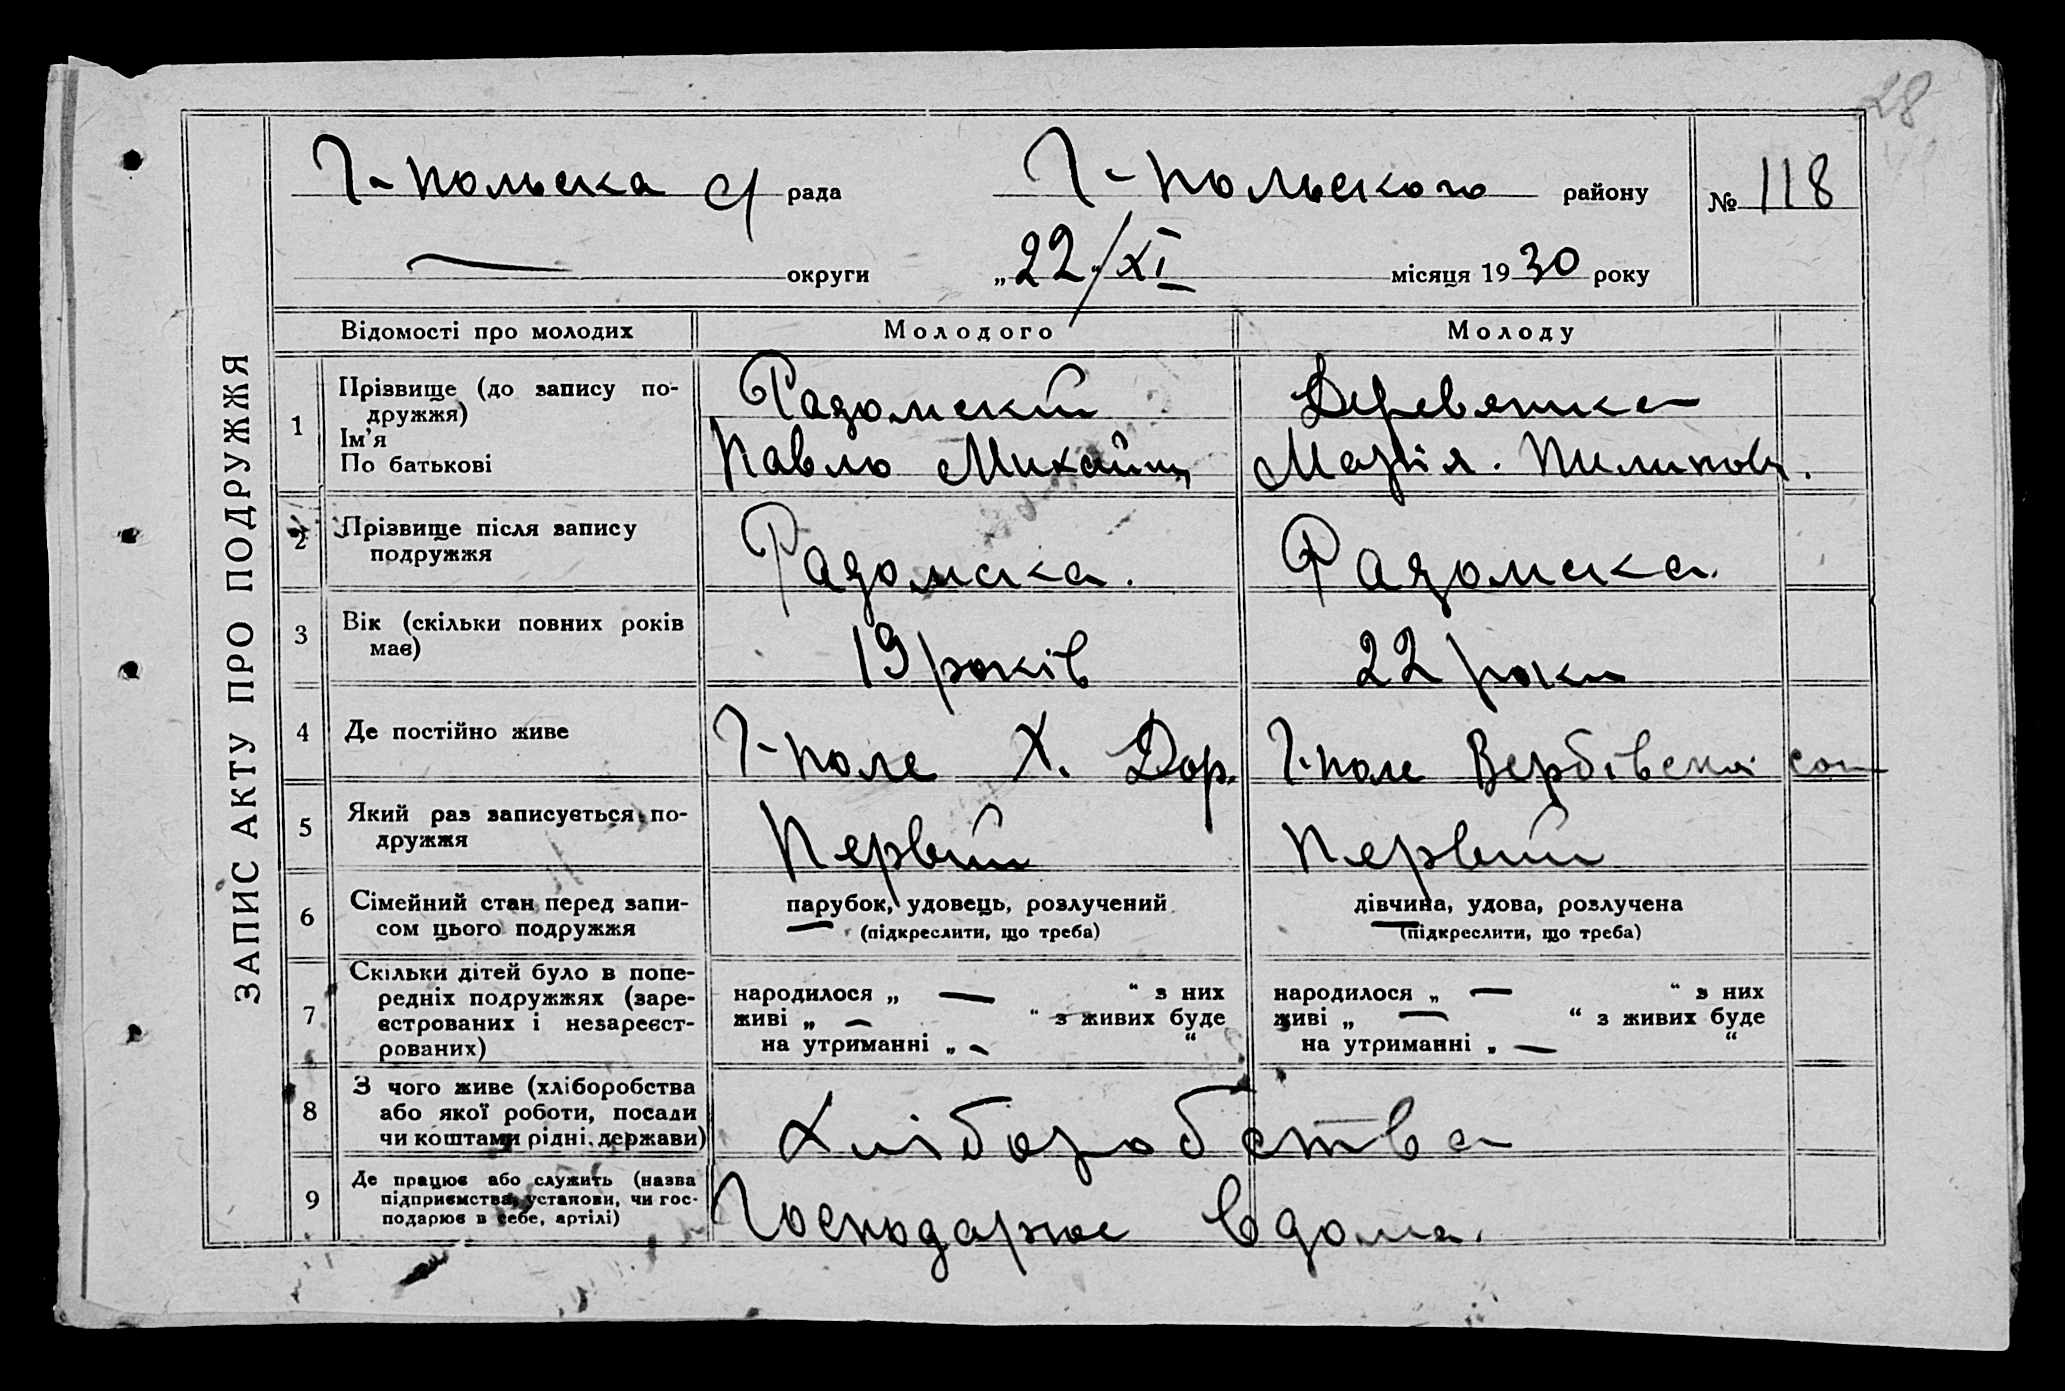 28
ЗАПИС АКТУ ПРО ПОДРУЖЖЯ
Г-польска с/ рада Г-польского району № 118
округи „22/XI місяця 1930 року
Відомості про молодих Молодого Молоду
1 Прізвище (до запису по-
дружжя)
Ім’я
По батькові
Радомский
Павло Михайл
Деревянка
Марія. Пилипов.
2 Прізвище після запису
подружжя
Радомска.
Радомска.
3 Вік (скільки повних років
має)
19 років
22 роки
4 Де постійно живе
Г-поле Х. Дор.
Г-поле Вербівська сот
5 Який раз записується по-
дружжя
Первий
Первий
6 Сімейний стан перед запи-
сом цього подружжя
парубок, удовець, розлучений
(підкреслити, що треба)
дівчина, удова, розлучена
(підкреслити, що треба)
7 Скільки дітей було в попе-
редніх подружжях (заре-
єстрованих і незареєст-
рованих)
народилося „ — “ з них
живі „ — “ з живих буде
на утриманні „ — “
народилося „ — “ з них
живі „ — “ з живих буде
на утриманні „ — “
8 З чого живе (хліборобства
або якої роботи, посади
чи коштами рідні, держави)
Хліборобства
9 Де працює або служить (назва
підприємства, установи, чи гос-
подарює в себе, артілі)
Господарює в дома.